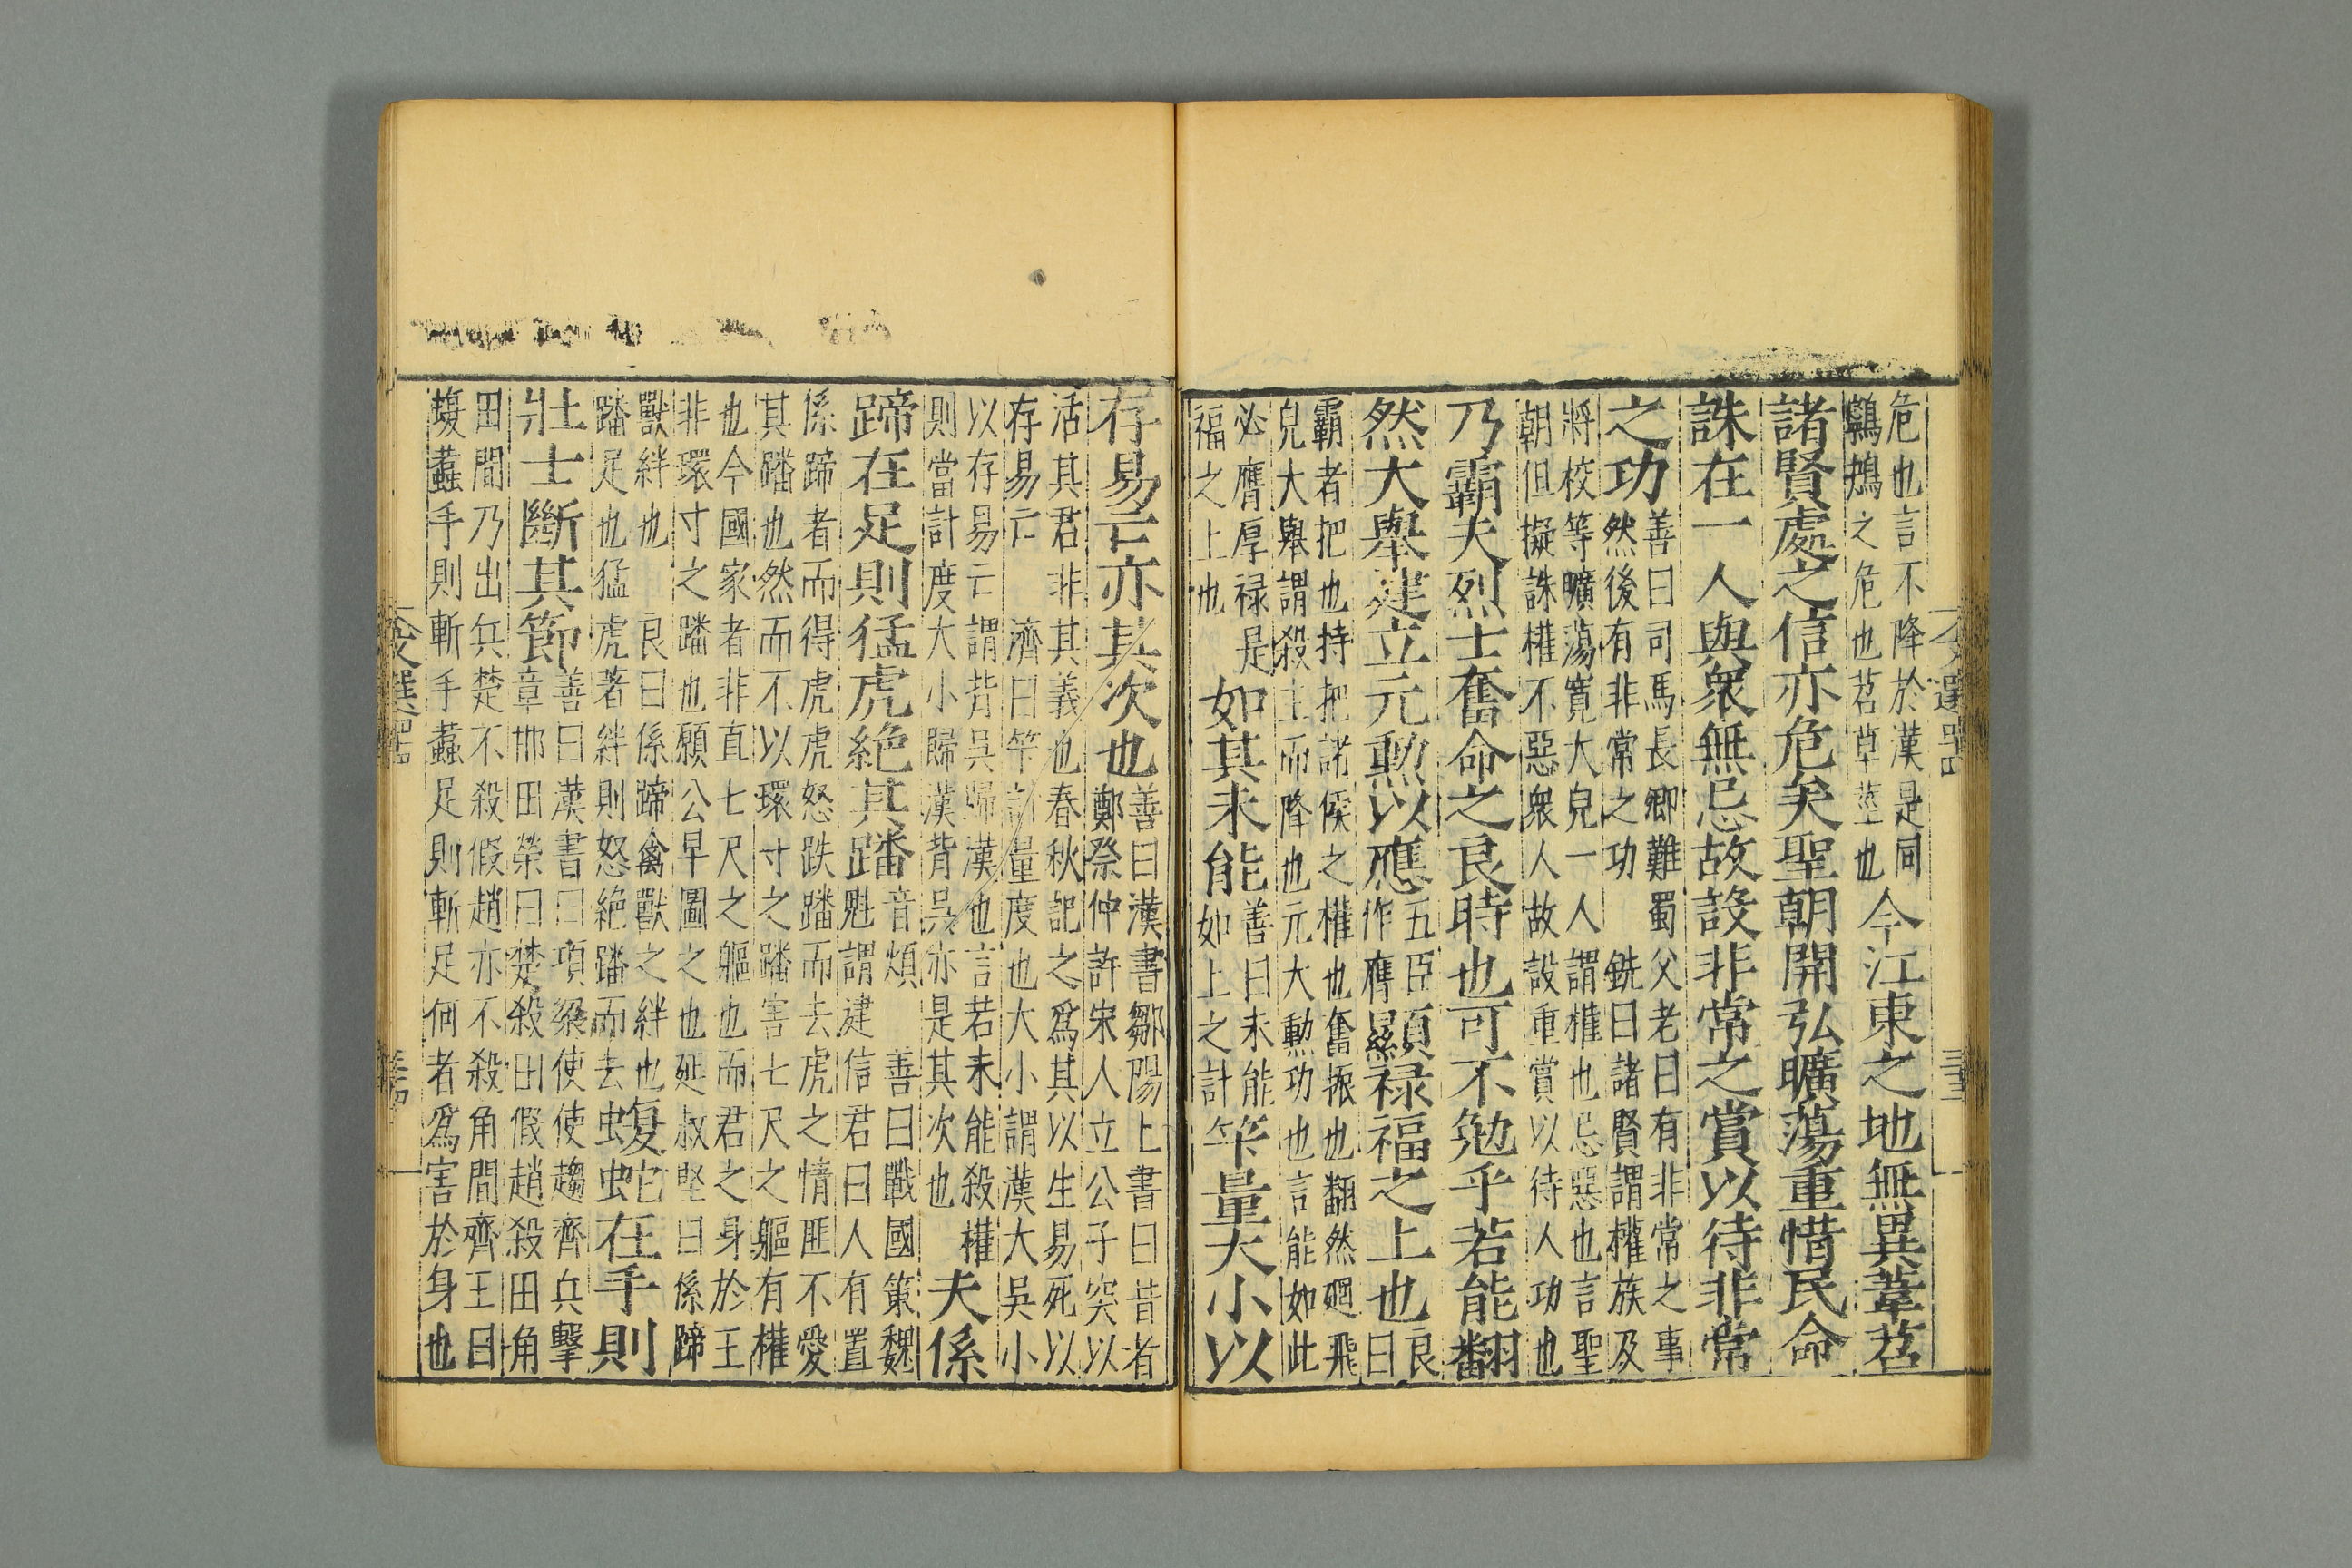 危也言不降於漢是同
鸋鴂之危也苕草莖也今江東之地無異葦苕
諸賢處之信亦危矣聖朝開弘曠蕩重惜民命
誅在一人與衆無忌故設非常之賞以待非常
之功善曰司馬長卿難蜀父老曰有非常之事
然後有非常之功 銑曰諸賢謂權族及
將校等曠蕩寬大皃一人謂權也忌惡也言聖
朝但擬誅權不惡衆人故設重賞以待人功也
乃霸夫烈士奮命之良時也可不勉乎若能翻
然大舉建立元勲以應五臣
作膺顯禄福之上也良
曰
霸者把也持把諸侯之權也奮振也翻然廻飛
皃大舉謂殺主而降也元大勲功也言能如此
必膺厚禄是
福之上也如其未能善曰未能
如上之計筭量大小以
存易亡亦其次也善曰漢書鄒陽上書曰昔者
鄭祭仲許宋人立公子突以
活其君非其義也春秋記之爲其以生易死以
存易亡 濟曰筭計量度也大小謂漢大吳小
以存易亡謂背吳歸漢也言若未能殺權
則當計度大小歸漢背吳亦是其次也夫係
蹄在足則猛虎絶其蹯音煩 善曰戰國策魏
魁謂建信君曰人有置
係蹄者而得虎虎怒跌蹯而去虎之情匪不愛
其蹯也然而不以環寸之蹯害七尺之軀有權
也今國家者非直七尺之軀也而君之身於王
非環寸之蹯也願公早圖之也延叔堅曰係蹄
獸絆也 良曰係蹄禽獸之絆也
蹯足也猛虎著絆則怒絶蹯而去蝮蛇在手則
壯士斷其節善曰漢書曰項梁使使趨齊兵擊
章邯田榮曰楚殺田假趙殺田角
田間乃出兵楚不殺假趙亦不殺角間齊王曰
蝮蠚手則斬手蠚足則斬足何者爲害於身也